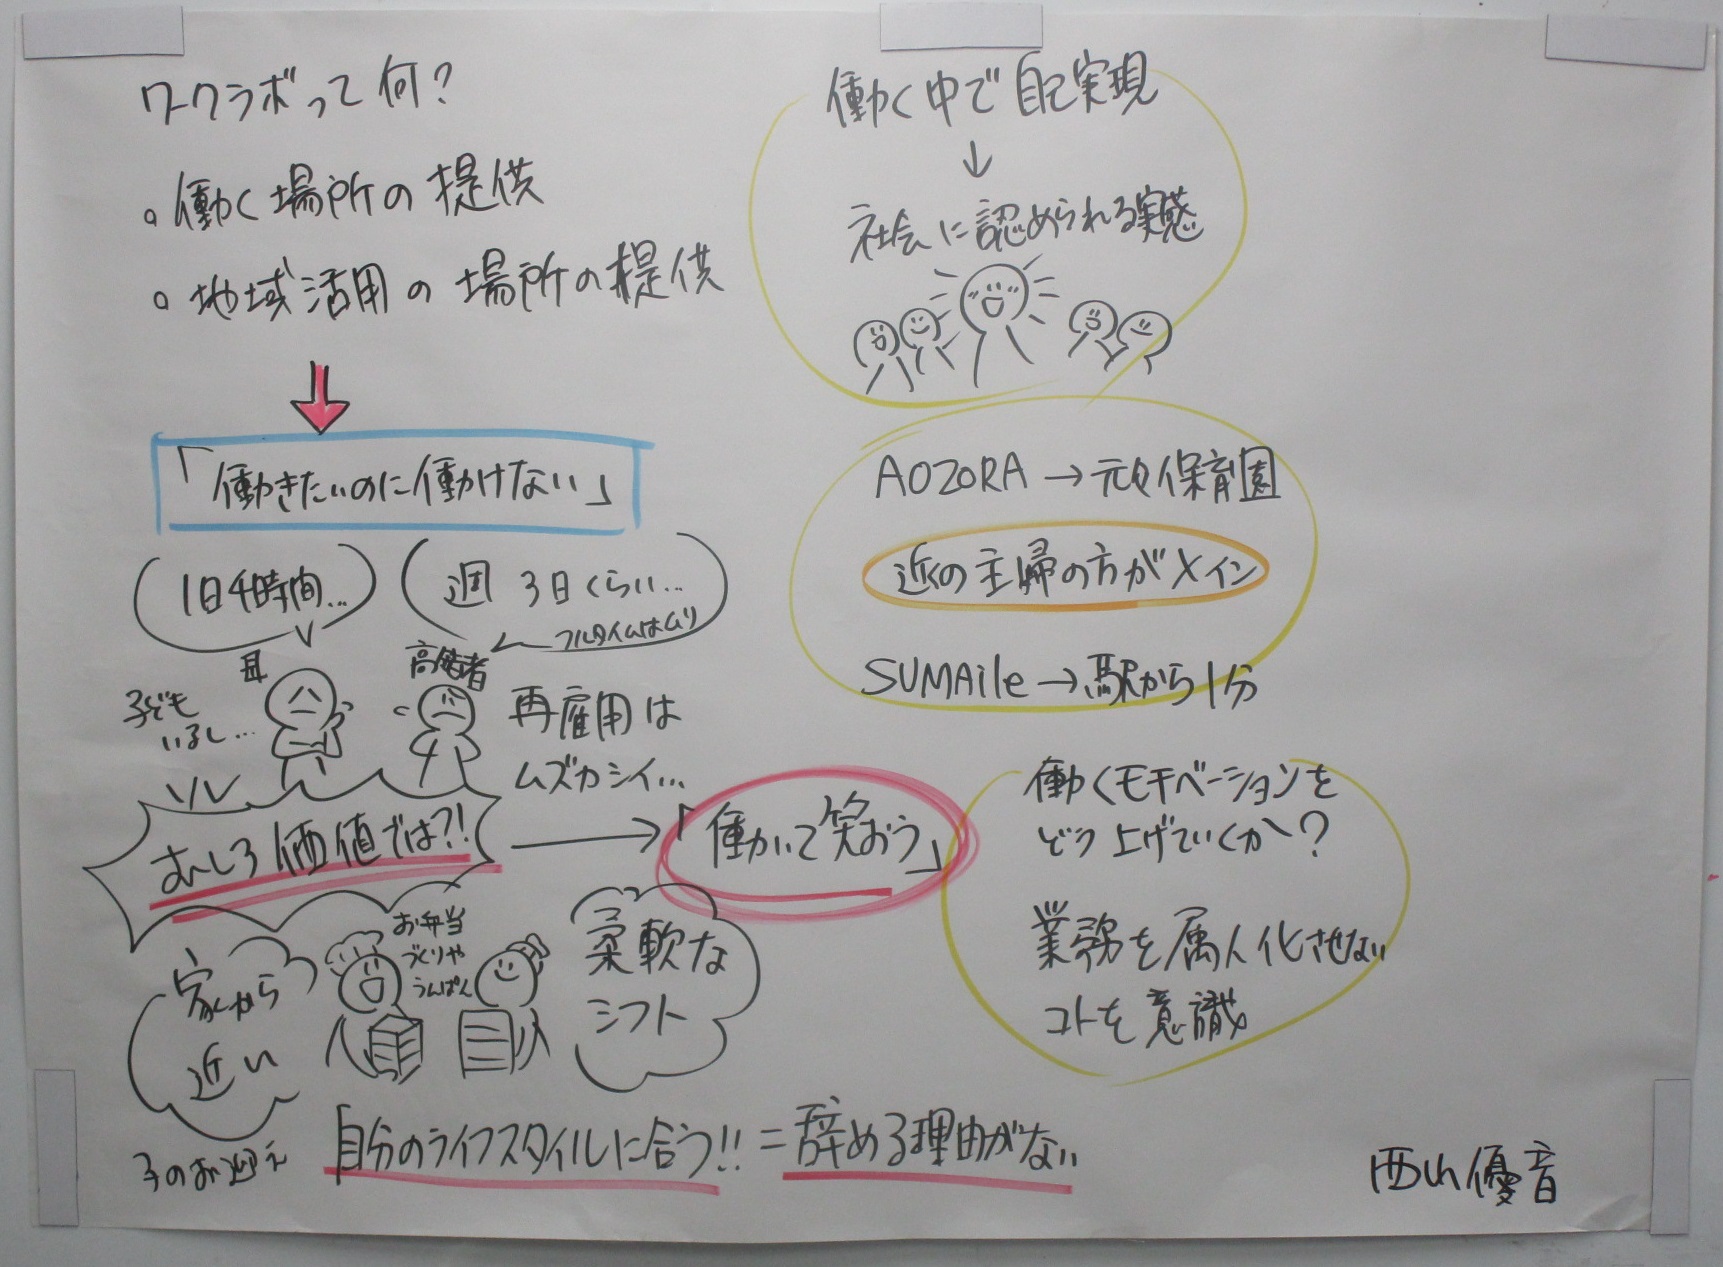 ワークラボって何?
。働く場所の提供
。地域活用の場所の提供
「働きたいのに働けない」
1日4時間...
週3日くらい...
フルタイムはムリ
母
高齢者
子ども
いるし...
再雇用は
ムズカシイ...
むしろ価値では?!
「働いて笑おう」
家から
近い
お弁当
づくりや
うんぱん
柔軟な
シフト
子のお迎え
自分のライフスタイルに合う!! = 辞める理由がない
働く中で自己実現
↓
社会に認められる実感
AOZORA → 元々保育園
近くの主婦の方がメイン
SUMAile → 駅から1分
働くモチベーションを
どう上げていくか?
業務を属人化させない
コトを意識
西山優音